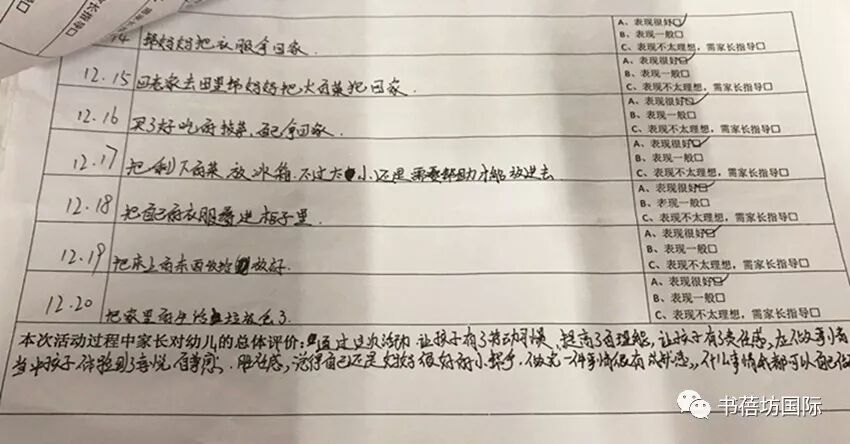 家长指导口
A、表现很好口
14 帮妈妈把衣服拿回家.
B、表现一般口
C、表现不太理想，需家长指导口
12.15 回老家去田里帮妈妈把大白菜 回家.
A、表现很好口
B、表现一般口
C、表现不太理想，需家长指导口
12.16 买了好吃的 菜,自己拿回家.
A、表现很好口
B、表现一般口
C、表现不太理想，需家长指导口
12.17 把剩下的菜放冰箱.不过太小,还是需要帮助才能放进去
A、表现很好口
B、表现一般口
C、表现不太理想，需家长指导口
12.18 把自己的衣服 进柜子里.
A、表现很好口
B、表现一般口
C、表现不太理想，需家长指导口
12.19 把床上的东西收拾放好.
A、表现很好口
B、表现一般口
C、表现不太理想，需家长指导口
12.20 把家里的生活垃圾 了.
A、表现很好口
B、表现一般口
C、表现不太理想，需家长指导口
本次活动过程中家长对幼儿的总体评价：通过这次活动 让孩子有了劳动 ,提高了自理能,让孩子有了责任感,在做事情
当中孩子体验到了喜悦, 、 感,觉得自己还是妈妈很好的小帮手.做完一件事情很有成就感,,什么事情 都可以自己
书蓓坊国际